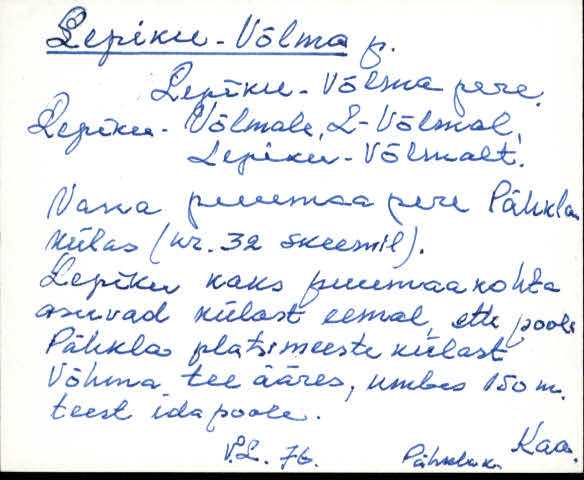 Lepiku-Võlma p.
Lepiku-Võlma pere.
Lepiku-Võlmale, L-Võlmal,
Lepiku-Võlmalt.
Vana puumaa pere Pähkla
külas (nr. 32 skeemil).
Lepiku kaks puumaa kohta
asuvad külast eemal, ette poole
Pähkla platsimeeste külast
Võhma tee ääres, umbes 150 m.
teest ida poole.
V.L. 76. Pähkla k. Kaa.